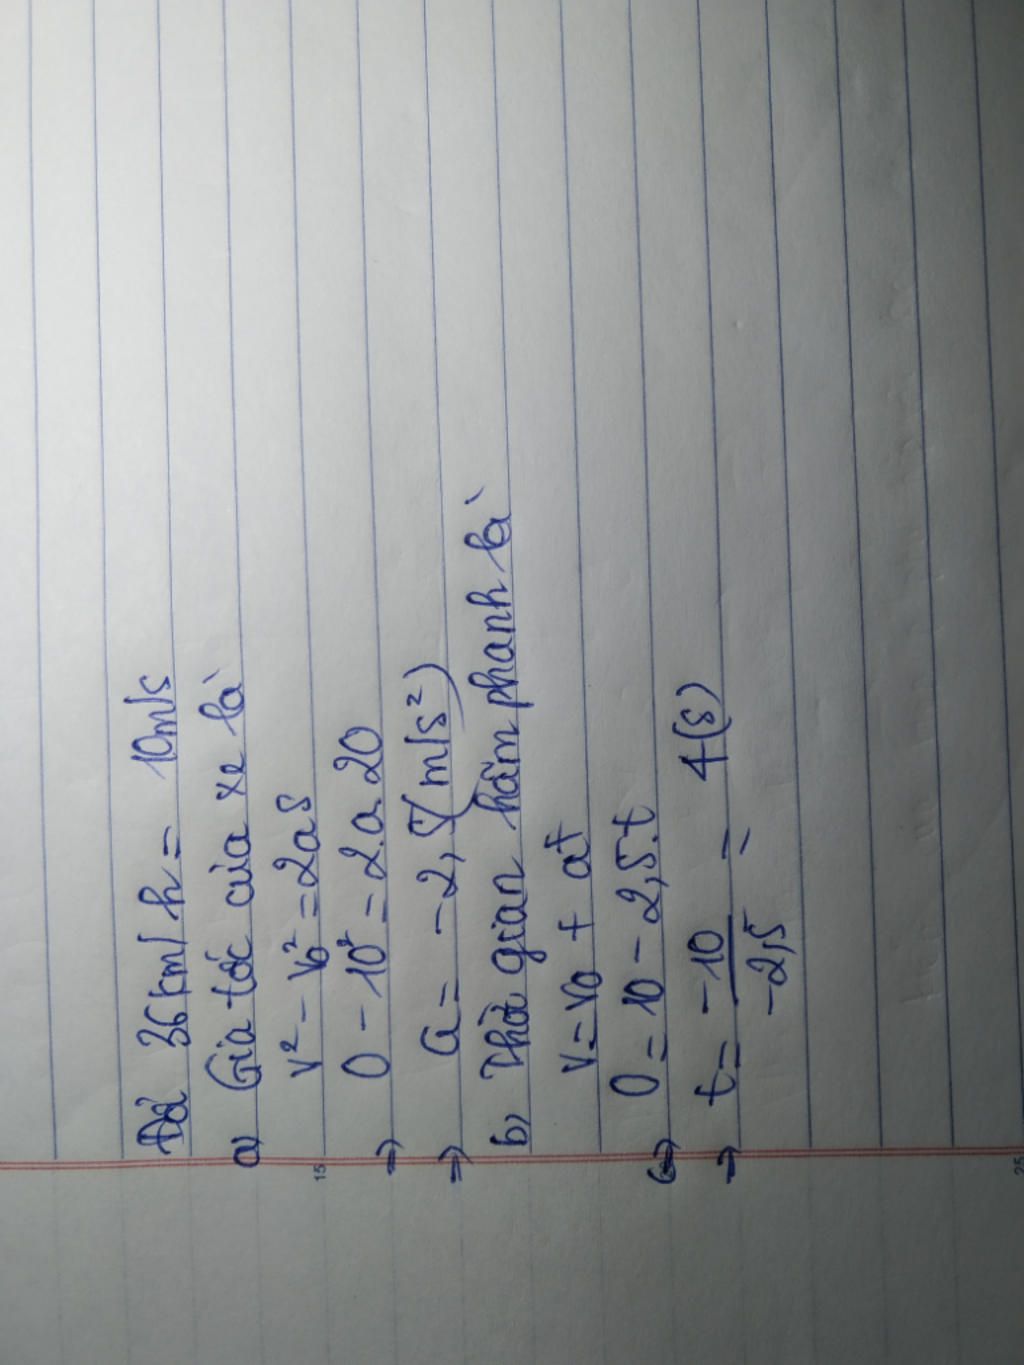 Đổi 36km/h = 10m/s
a) Gia tốc của xe là
v² - v₀² = 2as
⇒ 0 - 10² = 2.a.20
⇒ a = -2,5 (m/s²)
b) Thời gian hãm phanh là
v = v₀ + at
⇔ 0 = 10 - 2,5.t
⇒ t = -10/-2,5 = 4(s)
15
25